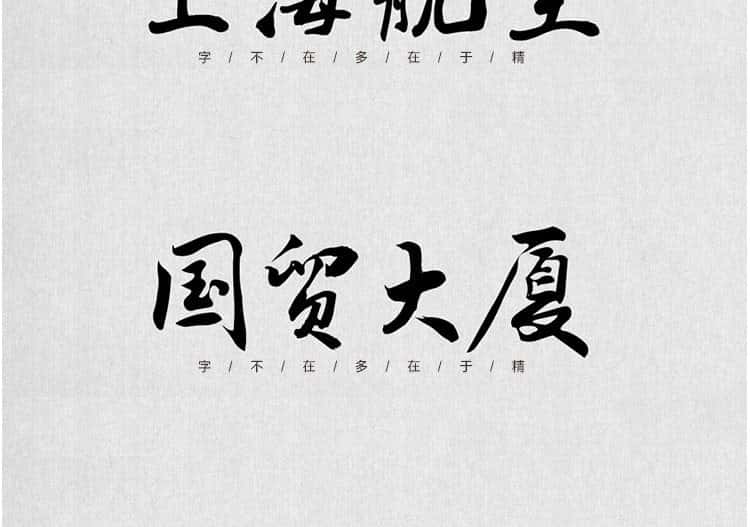 上海航空
字/不/在/多/在/于/精
国贸大厦
字/不/在/多/在/于/精